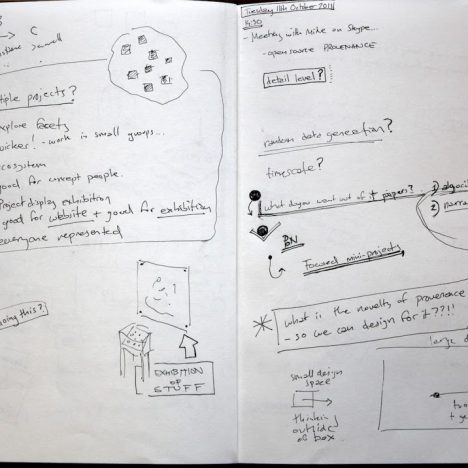 → C
multiple projects?
explore facets
quicker! - work in small groups...
ecosystem
good for concept people.
Project display exhibition
good for website + good for exhibition
everyone represented
doing this?
EXHIBITION
OF
STUFF
Tuesday 11th October 2011
14:30
- Meeting with Mike on Skype...
- open source PROVENANCE
detail level?
random data generation?
timescale?
what do you want out of it papers?
1) algorith
2) narra
BN
Focused mini-projects
* what is the novelty of provenance
- so we can design for it??!!
large d
small design
space
→
thinking
outside
of box.